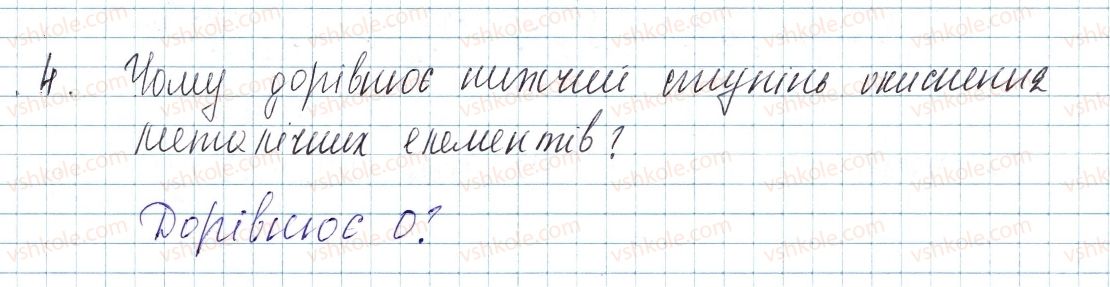 4. Чому дорівнює нижчий ступінь окиснення
металічних елементів?
Дорівнює 0?